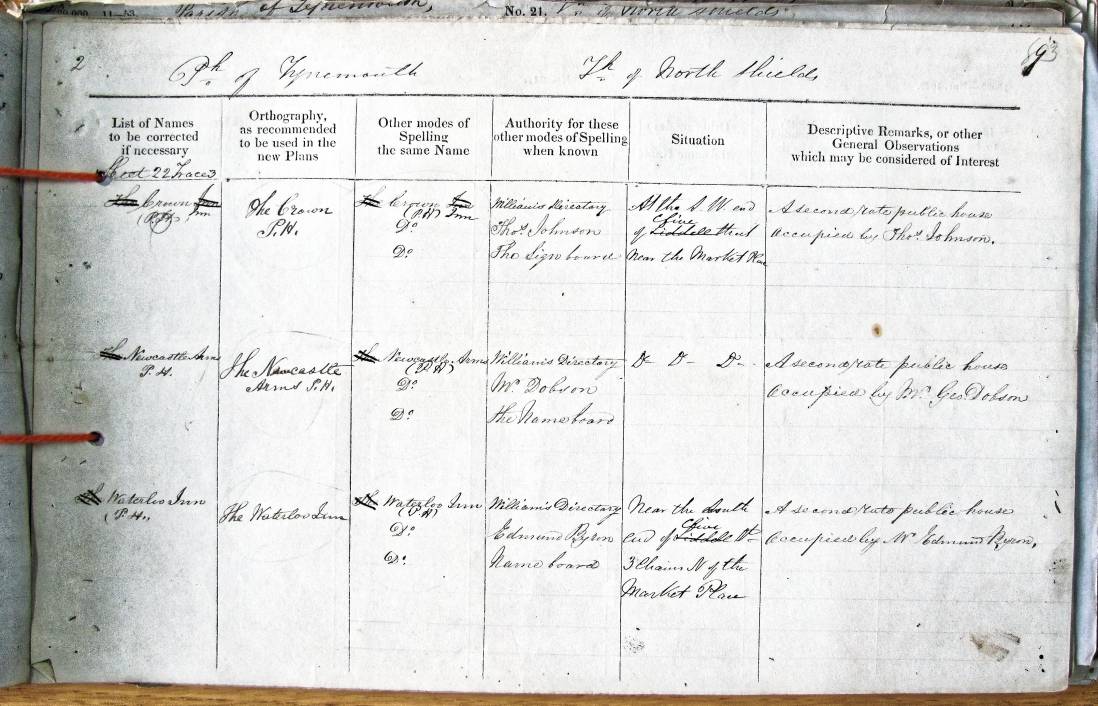 Parish of Tynemouth, No. 21. Tn. of North Shields
2 Ph of Tynemouth Th of North Shields 93
List of Names to be corrected if necessary
Orthography, as recommended to be used in the new Plans
Other modes of Spelling the same Name
Authority for these other modes of Spelling when known
Situation
Descriptive Remarks, or other General Observations which may be considered of Interest
Sheet 22 Trace 3
The Crown Inn
(P.H.) Inn
The Crown
P.H.
The Crown Inn
(P.H) Inn
Do
Do
William's Directory
Thos. Johnson
The Sign board
At the S.W. end
of Liddell Clive Street
near the Market Place
A second rate public house
occupied by Thos. Johnson.
The Newcastle Arms
P.H.
The Newcastle
Arms P.H.
The Newcastle Arms
(P.H)
Do
Do
William's Directory
Mr Dobson
the Name board
Do Do Do
A second rate public house
occupied by Mr. Geo Dobson
The Waterloo Inn
(P.H.,
The Waterloo Inn
The Waterloo Inn
(P.H)
Do
Do
William's Directory
Edmund Byron
Name board
Near the South
end of Liddell Clive St.
3 Chains N of the
Market Place
A second rate public house
occupied by Mr Edmund Byron.